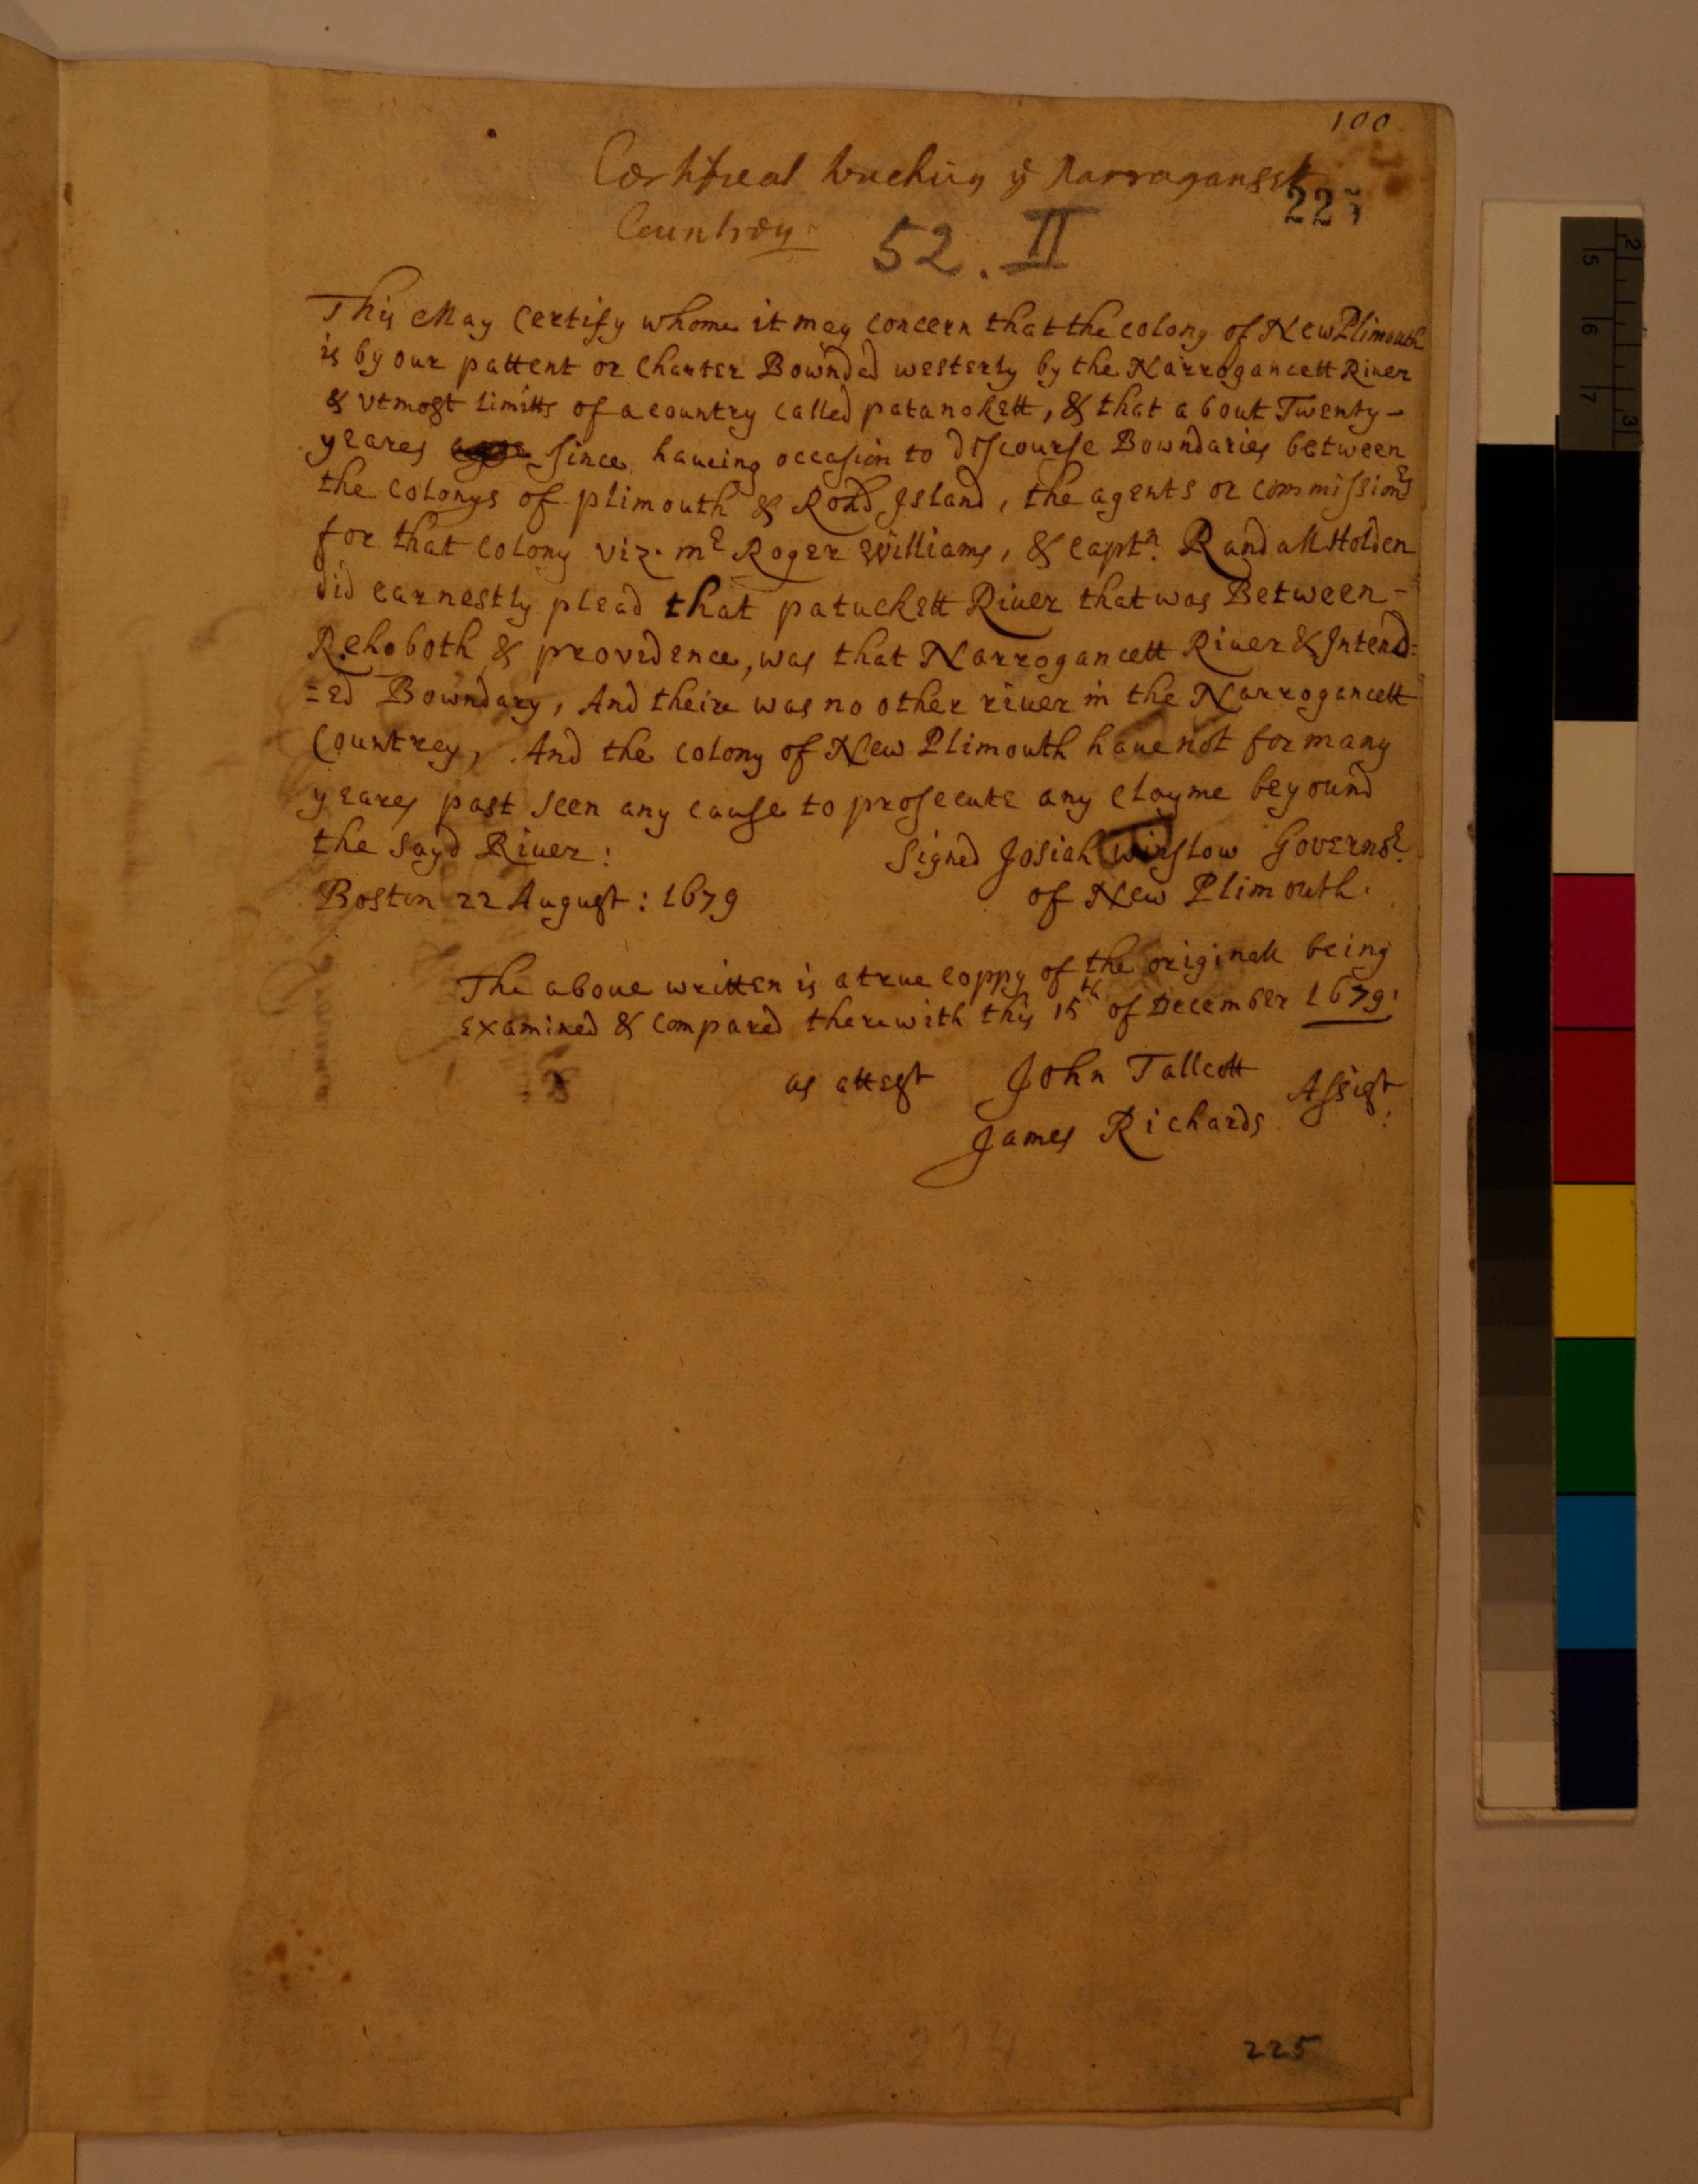 100
Certificat touching ye Narragansett
225
Countrey
52. II
This May Certify whome it may concern that the colony of New Plimouth
is by our pattent or Charter Bownded westerly by the Narrogancett River
& vtmost limitts of a country called patanokett, & that about Twenty-
yeares since haueing occasion to discourse Bowndaries between
the colonys of plimouth & Road Island, the agents or commissionrs
for that colony viz. mr Roger Williams, & captn. Randall Holden
did earnestly plead that patuckett Riuer that was Between-
Rehoboth & providence, was that Narrogancett Riuer & Intend=
=ed Bowndary, And theire was no other riuer in the Narrogancett
Countrey, And the colony of New Plimouth haue not for many
yeares past seen any cause to prosecute any clayme beyound
the sayd Riuer: Signed Josiah Winslow Governor.
Boston 22 August: 1679 of New Plimouth.
The aboue written is a true coppy of the originall being
Examined & compared therewith this 15th of December 1679:
as attest John Tallcott Assist:
James Richards
224
225
2
5
6
7
3